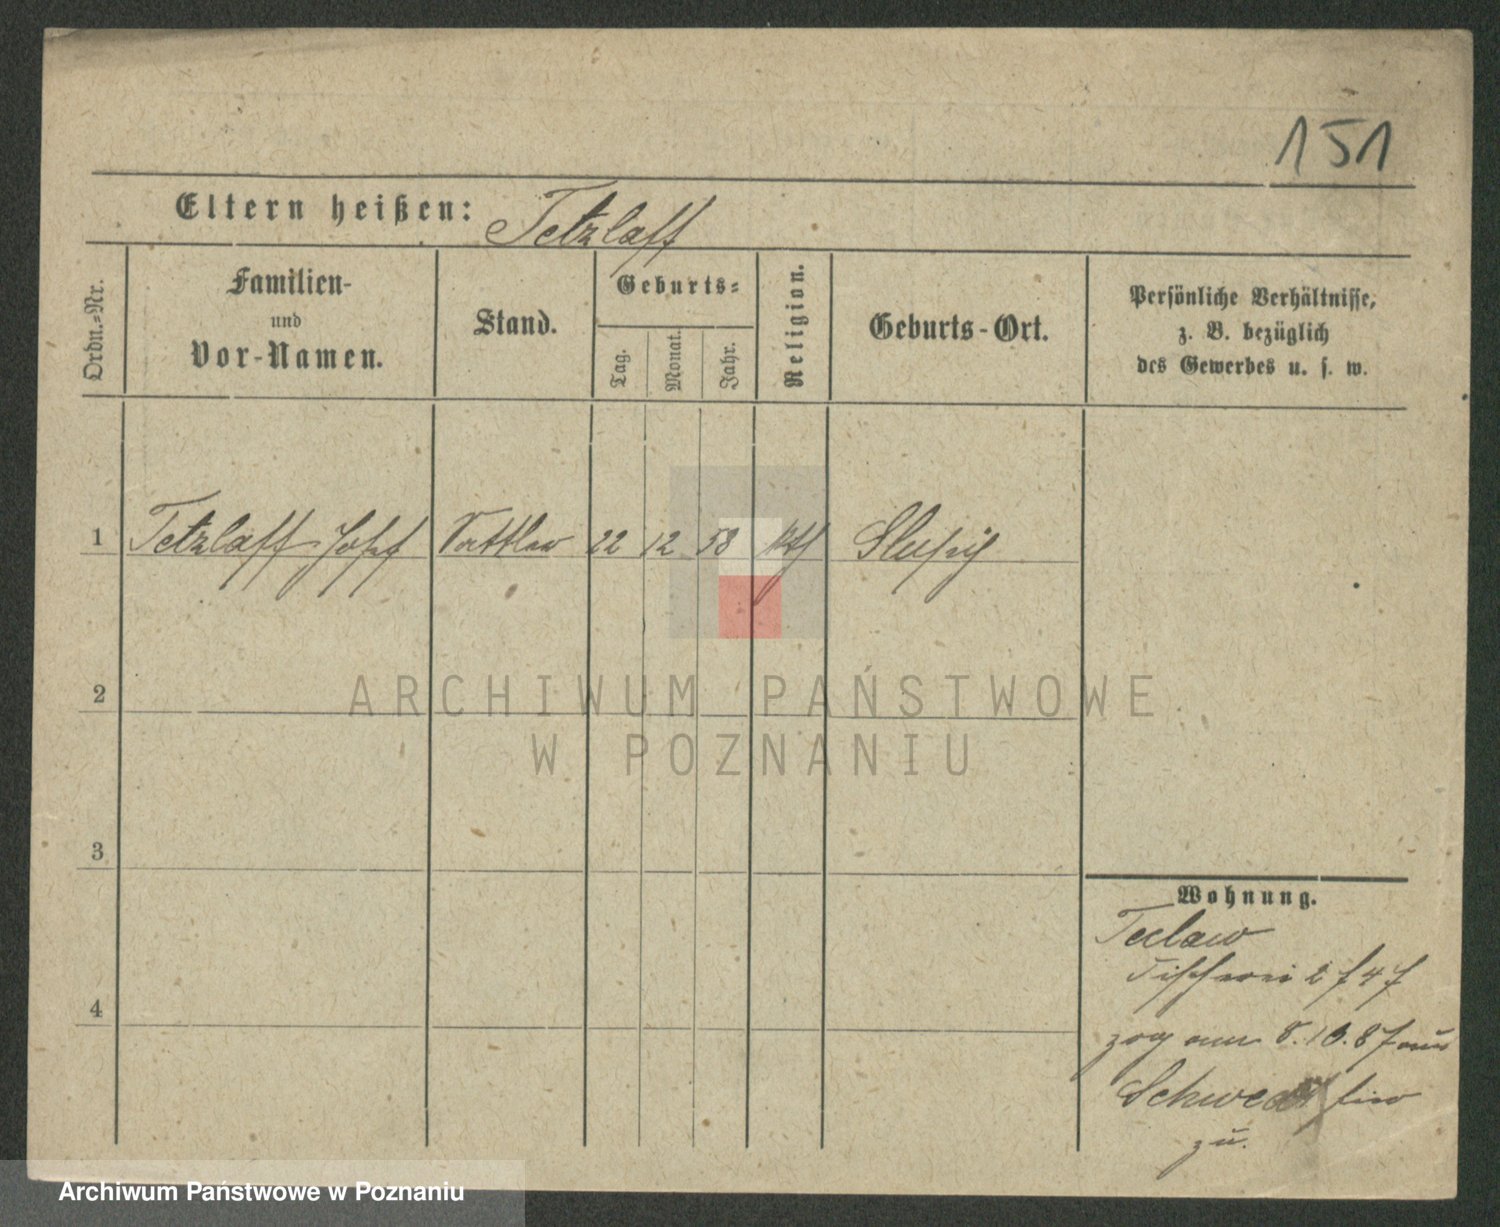 151
Eltern heißen: Tetzlaff
Ordn.-Nr.
Familien-
und
Vor-Namen.
Stand.
Geburts-
Tag.
Monat.
Jahr.
Religion.
Geburts-Ort.
Persönliche Verhältnisse,
z. B. bezüglich
des Gewerbes u. s. w.
1 Tetzlaff Josef Sattler 22 12 58 kth
2
3
4
Wohnung.
Teclaw
Fischerei
zog am 8.10.87 aus
Schwedt hier
zu.
ARCHIWUM PAŃSTWOWE
W POZNANIU
Archiwum Państwowe w Poznaniu